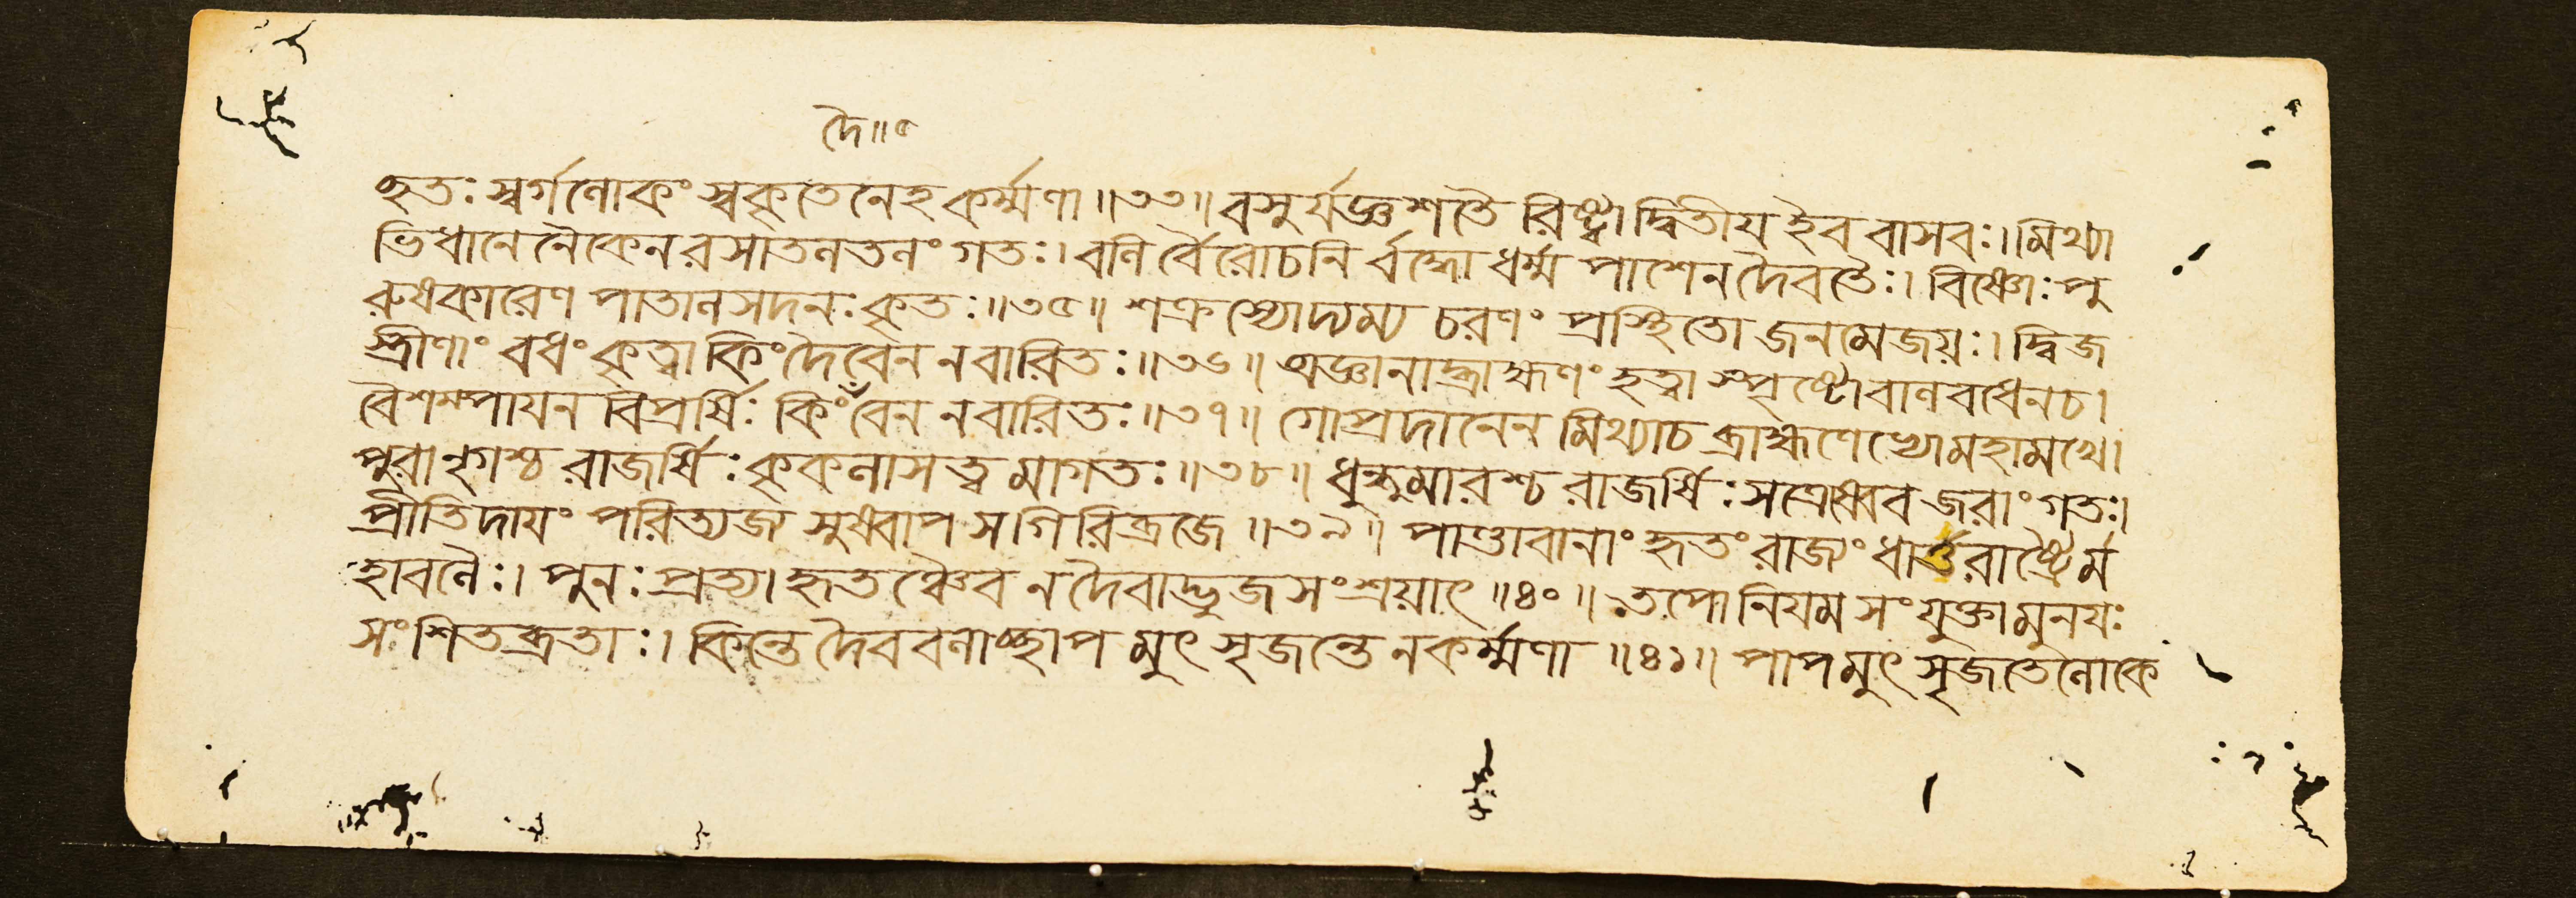 দৈ॥৫
হৃতঃ স্বর্গণোকং স্বকৃতেনেহ কর্ম্মণা॥৩৩॥ বসুর্যজ্ঞশতৈ রিষ্ট্বা দ্বিতীয ইৈব বাসবঃ। মিথ্যা
ভিধানেনৈকেন রসাতনতনং গতঃ। বনি র্বৈরোচনি র্বদ্ধো ধর্ম্ম পাশেন দৈবতৈঃ। বিষ্ণোঃ পু
রুষকারেণ পাতানসদনঃ কৃতঃ॥৩৫॥ শক্রস্যোদ্যম্য চরণং প্রস্থিতো জনমেজয়ঃ। দ্বিজ
স্ত্রীণাং বধং কৃত্বা কিং দৈবেন ন বারিতঃ॥৩৬॥ অজ্ঞানাদ্ব্রাহ্মণং হত্বা স্পৃষ্টো বানবধেন চ।
বৈশম্পাযন বিপ্রর্ষিঃ কিং বেন ন বারিতঃ॥৩৭॥ গোপ্রদানেন মিথ্যা চ ব্রাহ্মণেভ্যো মহামখে।
পুরা নৃগশ্চ রাজর্ষিঃ কৃকনাসত্ব মাগতঃ॥৩৮॥ ধুন্ধুমারশ্চ রাজর্ষিঃ সত্রেষ্বেব জরাং গতঃ।
প্রীতিদাযং পরিত্যজ্য সুষ্বাপ স গিরিব্রজে॥৩৯॥ পাণ্ডাবানাং হৃতং রাজ্যং ধার্ত্তরাষ্ট্রৈর্ম
হাবনৈঃ। পুনঃ প্রত্যাহৃতঞ্চৈব ন দৈবাদ্ভুজসংশ্রয়াৎ॥৪০॥ তপোনিযম সংযুক্তা মুনযঃ
সংশিতব্রতাঃ। কিন্তে দৈববনাচ্ছাপ মুৎসৃজন্তে ন কর্ম্মণা॥৪১॥ পাপমুৎসৃজতে নোকে